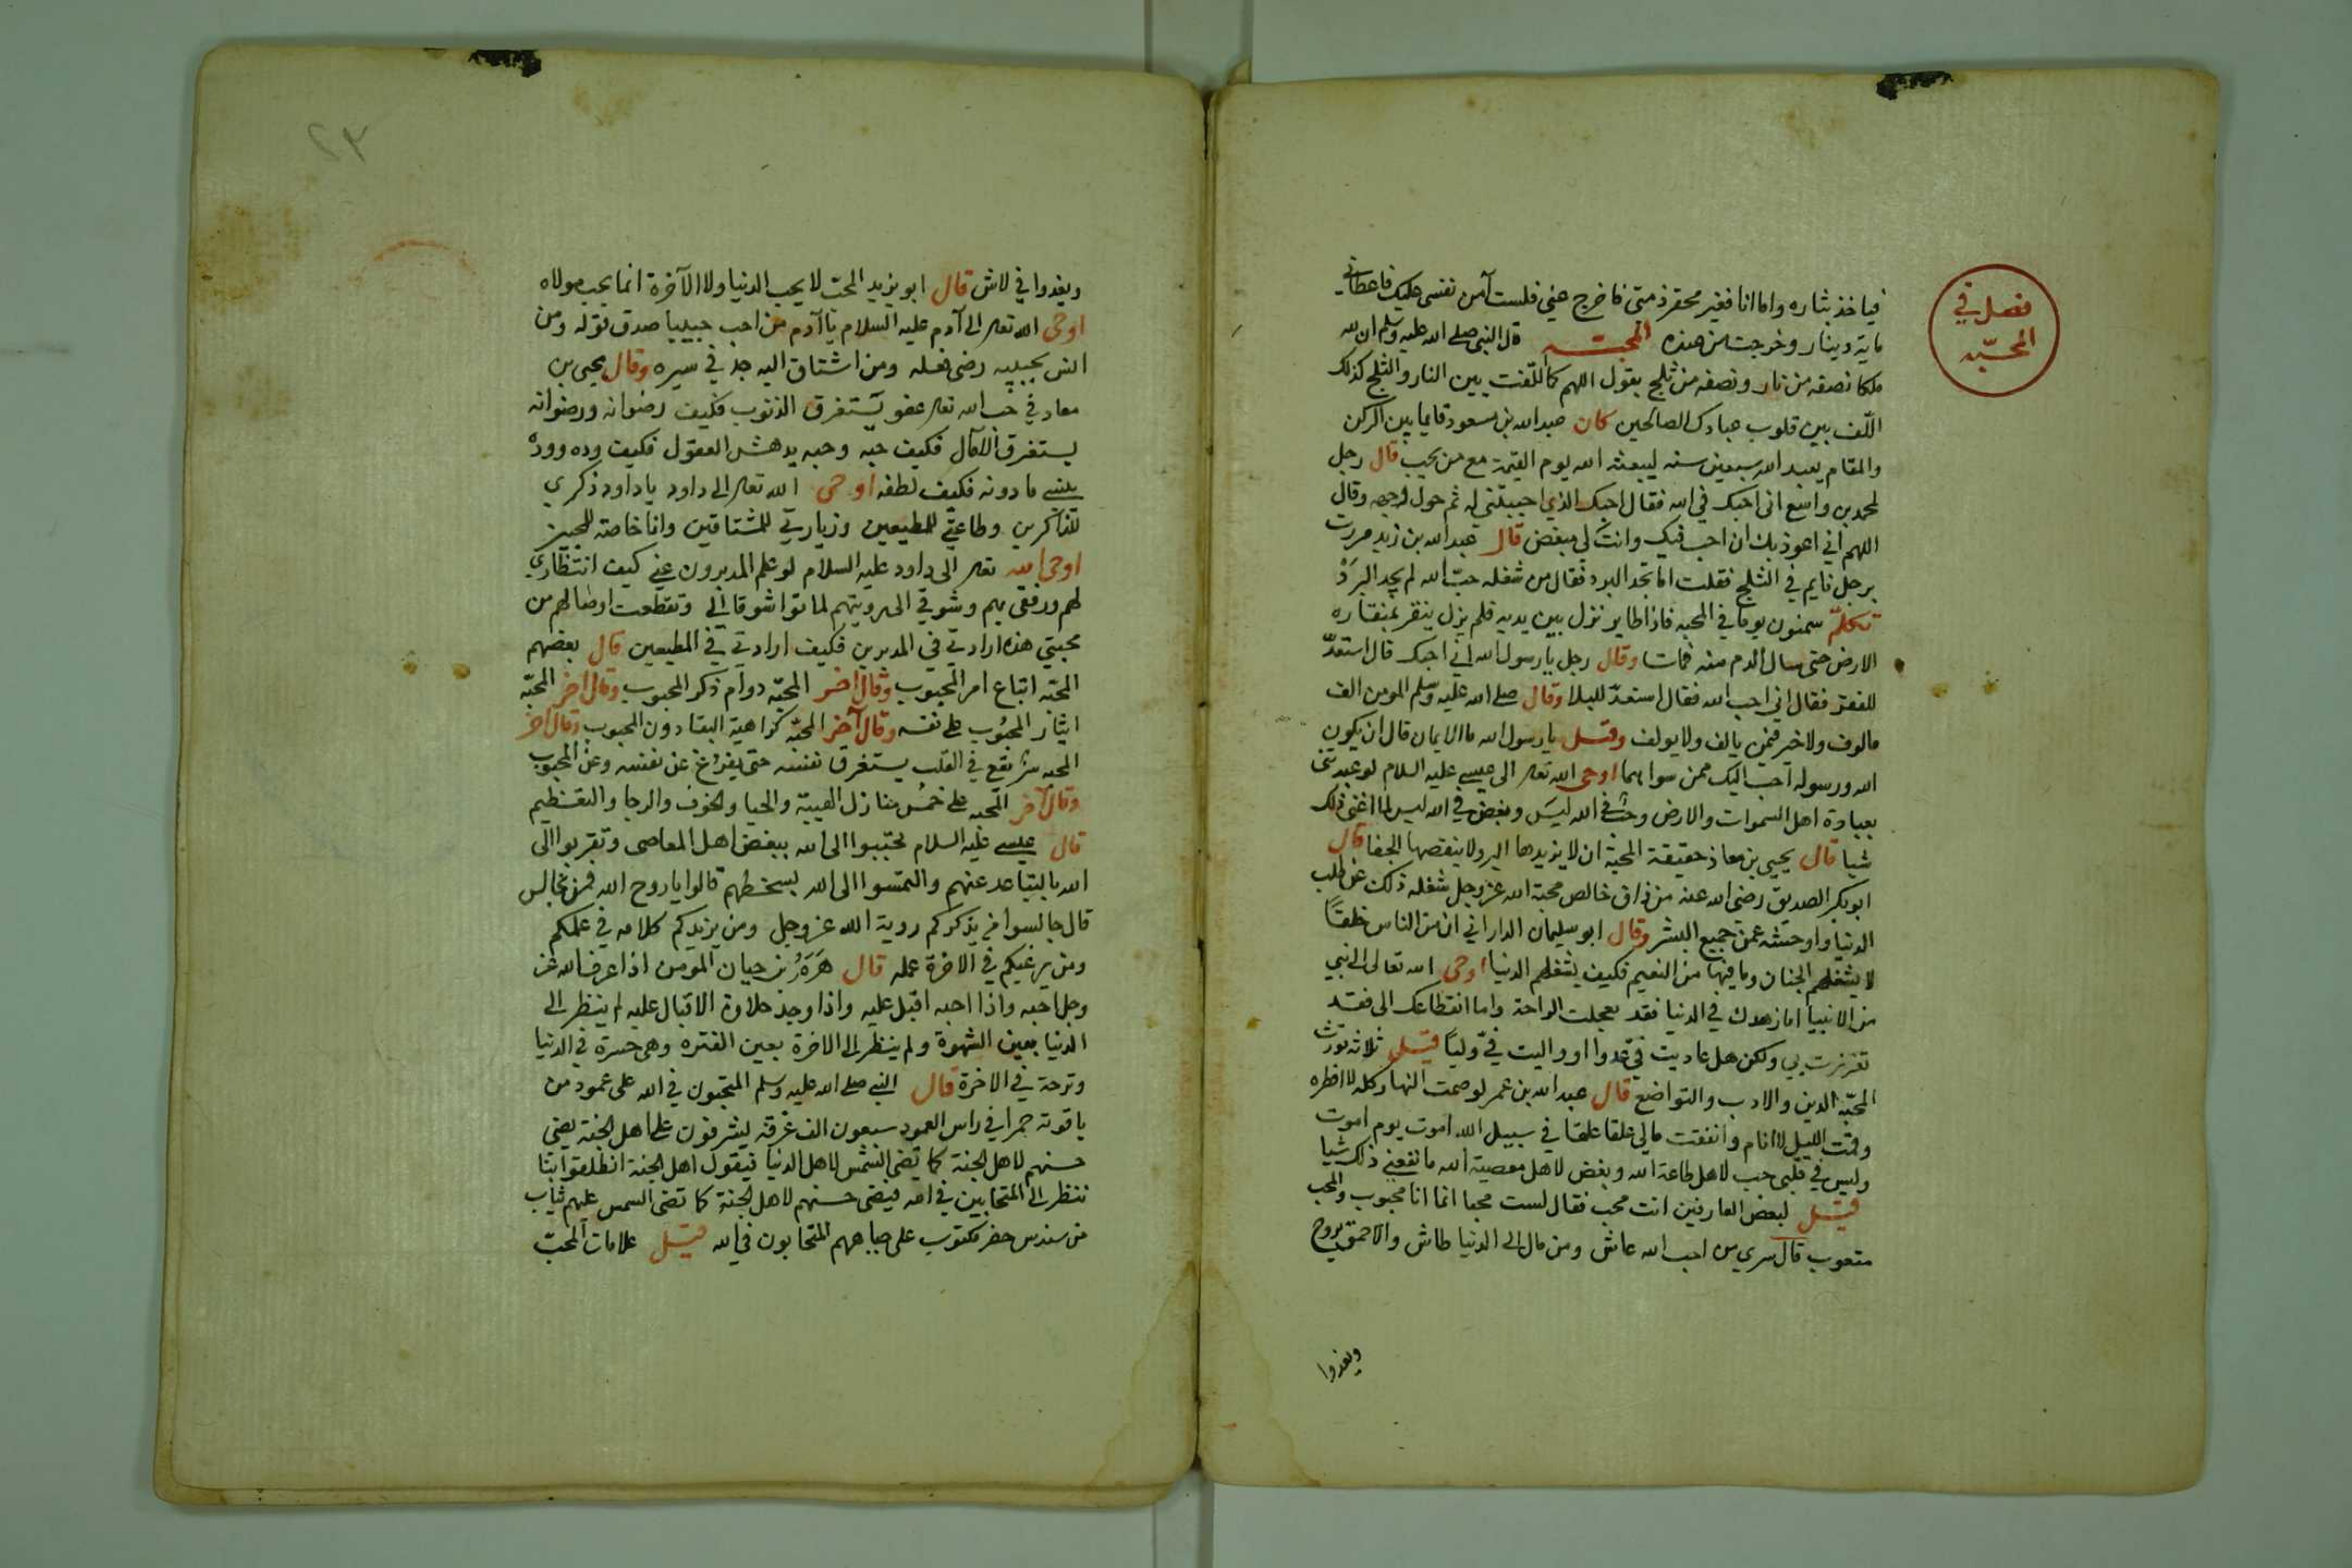 فصل في
المحبّه
فياخذ بثاره واما انا فغير محقر ذمتي فاخرج عني فلست آمن نفسي عليك فاعطاني
ماية دينار وخرجت من عنده المحبّـــه قال النبي صلى الله عليه وسلم ان لله
ملكا نصفه من نار ونصفه من ثلج يقول اللهم كما الّفت بين النار والثلج كذلك
الّف بين قلوب عبادك الصالحين كان عبد الله بن مسعود قايما بين الركن
والمقام يعبد الله سبعين سنه ليبعثه الله يوم القيمة مع من يحب قال رجل
لمحمد بن واسع اني احبك في الله فقال احبك الذي احببتني له ثم حول وجهه وقال
اللهم اني اعوذ بك ان احب فيك وانت لي مبغض قال عبد الله بن زيد مررت
برجل نايم في الثلج فقلت اما تجد البرد فقال من شغله حبّ الله لم يجد البرَدْ
تكلّم سمنون يوما في المحبه فاذا طاير نزل بين يديه فلم يزل ينقر بمنقاره
الارض حتى سال الدم منه فمات وقال رجل يا رسول الله اني احبك قال استعدّ
للفقر فقال اني احب الله فقال استعدّ للبلا وقال صلى الله عليه وسلم المومن الف
مالوف ولا خير فيمن يالف ولا يولف وقيـل يا رسول الله ما الايمان قال ان يكون
الله ورسوله احب اليك ممن سواهما اوحى الله تعالى الى عيسى عليه السلام لو عبدتني
بعبادة اهل السموات والارض وحب في الله ليسَ وبغض في الله ليس لما اغنى ذلك
شيا قال يحيى بن معاذ حقيقة المحبة ان لا يزيدها البر ولا ينقصها الجفا قال
ابو بكر الصديق رضي الله عنه من ذاق خالص محبة الله عز وجل شغله ذلك عن طلب
الدنيا واوحشه عمن جميع البشر وقال ابو سليمان الداراني ان من الناس خلقًا
لا يشغلهم الجنان وما فيها من النعيم فكيف يشغلهم الدنيا اوحى الله تعالى الى نبي
من الانبيا اما زهدك في الدنيا فقد تعجلت الراحة واما انقطاعك الى فقد
تعززت بي ولكن هل عاديت فيّ عدوا او واليت فيّ وليًا قيل ثلاثه تورث
المحبّة الدين والادب والتواضع قال عبد الله بن عمر لو صمت النهار كله لا افطره
وقمت الليل لا انام وانفقت مالي علقا علقا في سبيل الله اموت يوم اموت
وليس في قلبي حب لاهل طاعة الله وبغض لاهل معصية الله ما نفعني ذلك شيا
قيل لبعض العارفين انت محب فقال لست محبا انما انا محبوب والمحب
متعوب قال سري من احب الله عاش ومن مال الى الدنيا طاش والاحمق يروح
ويغدوا
٢٣
ويغدوا في لاش قال ابو يزيد المحبّ لا يحب الدنيا ولا الآخرة انما يحب مولاه
اوحى الله تعالى الى آدم عليه السلام يا آدم من احب حبيبا صدق قوله ومن
انس بحبيبه رضى فعله ومن اشتاق اليه جد في سيره وقال يحيى بن
معاذ في حب الله تعالى عفو يستغرق الذنوب فكيف رضوانه ورضوانه
يستغرق الآمال فكيف حبّه وحبه يدهش العقول فكيف وده ووده
ينسي ما دونه فكيف لطفه اوحى الله تعالى الى داود يا داود ذكري
للذاكرين وطاعتي للمطيعين وزيارتي للمشتاقين وانا خاصة للمحبين
اوحى الله تعالى الى داود عليه السلام لو علم المدبرون عني كيف انتظاري
لهم ورفقي بهم وشوقي الى رويتهم لماتوا شوقا الي وتقطعت اوصالهم من
محبتي هذه ارادتي في المدبرين فكيف ارادتي في المطيعين قال بعضهم
المحبّه اتباع امر المحبوب وقال اخر المحبّه دوام ذكر المحبوب وقال اخر المحبّه
ايثار المحبُوب على نفسه وقال آخر المحبّه كراهية البقا دون المحبوب وقال اخر
المحبه شي يقع في القلب يستغرق نفسه حتى يفرغ عن نفسه وعن المحبوب
وقال آخر المحبه على خمس منازل الهيبة والحيا والخوف والرجا والتعظيم
قال عيسى عليه السلام تحببوا الى الله ببغض اهل المعاصي وتقربوا الى
الله بالتباعد عنهم والتمسوا الى الله بسخطهم قالوا يا روح الله فمن نجالس
قال جالسوا من يذكركم روية الله عز وجل ومن يزيدكم كلامه في عملكم
ومن يرغبكم في الاخرة عمله قال هَرَمُ بن حيان المومن اذا عرف الله عز
وجل احبه واذا احبه اقبل عليه واذا وجد حلاوة الاقبال عليه لم ينظر الى
الدنيا بعين الشهوة ولم ينظر الى الاخرة بعين الفتره وهي حسرة في الدنيا
وترحة في الاخرة قال النبي صلى الله عليه وسلم المتحبون في الله على عمود من
ياقوتة حمرا في راس العمود سبعون الف غرفه يشرفون على اهل الجنة يضي
حسنهم لاهل الجنة كما تضي الشمس لاهل الدنيا فيقول اهل الجنة انطلقوا بنا
ننظر الى المتحابين في الله فيضي حسنهم لاهل الجنة كما تضي الشمس عليهم ثياب
من سندس خضر مكتوب على جباههم المتحابون في الله قيـل علامات المحبّ